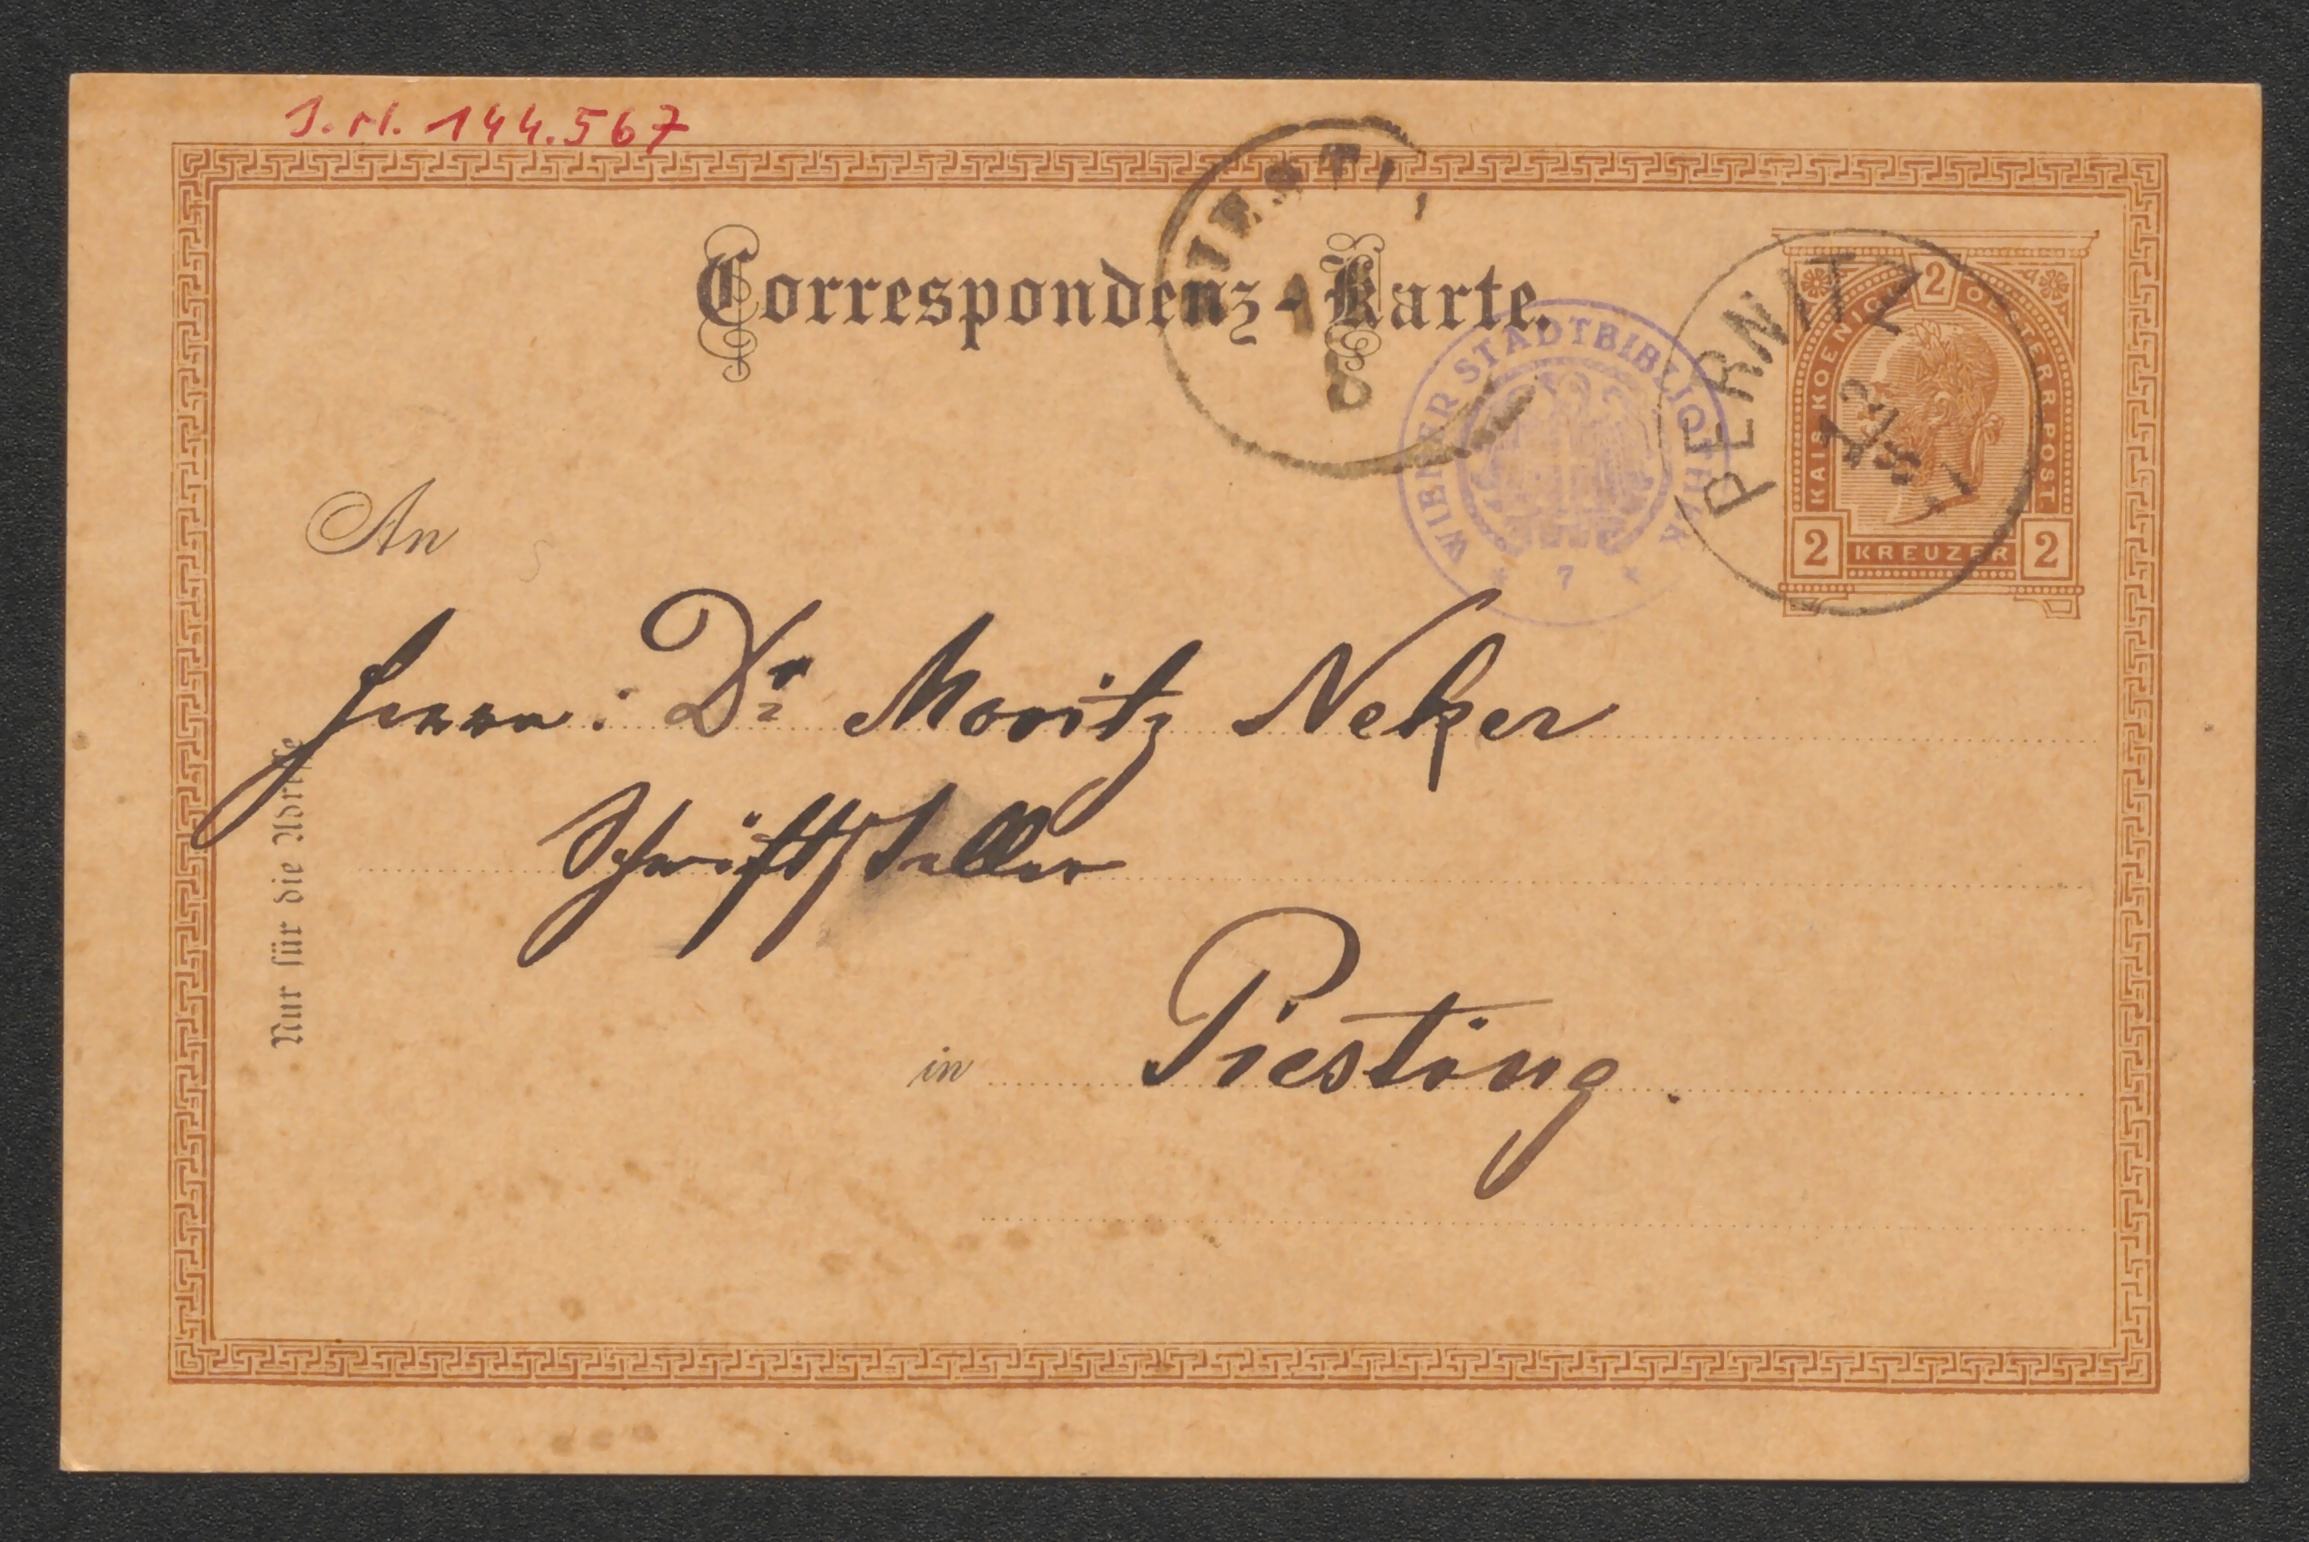 J. N. 144.567
Correspondenz-Karte.
WIENER STADTBIBLIOTHEK
* 7 *
PERNITZ
12
8
2
KAIS. KOENIGL. OESTERR. POST.
2 KREUZER 2
An
Herrn: Dr Moritz Neker
Schriftsteller
in Piesting.
Nur für die Adresse